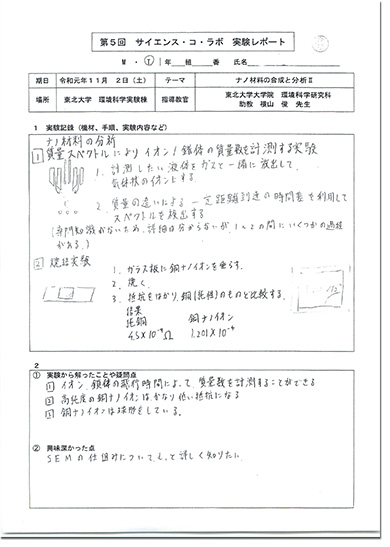 第5回 サイエンス・コ・ラボ 実験レポート
M・①1年 組 番 氏名
期日 令和元年11月 2日(土) テーマ ナノ材料の合成と分析Ⅱ
場所 東北大学 環境科学実験棟 指導教官 東北大学大学院 環境科学研究科
助教 横山 俊 先生
1 実験記録(機材、手順、実験内容など)
ナノ材料の分析
1 質量スペクトルによりイオン/錯体の質量数を計測する実験
1. 計測したい液体をガスと一緒に放出して、
気体状のイオンとする
2. 質量の違いによる一定距離到達の時間差を利用して
スペクトルを検出する
(専門知識がないため、詳細は分からないが、1と2の間にいくつかの過程
がある。)
2 焼結実験
1. ガラス板に銅ナノイオンを垂らす。
2. 焼く。
3. 抵抗をはかり、銅(純粋)のものと比較する。
結果
純銅 銅ナノイオン
Ω 1.201×10
2
① 実験から解ったことや疑問点
1 イオン、錯体の飛行時間によって、質量数を計測することができる
2 高純度の銅ナノイオンはかなり低い抵抗になる
3 銅ナノイオンは球形をしている。
② 興味深かった点
SEMの仕組みについて、もっと詳しく知りたい